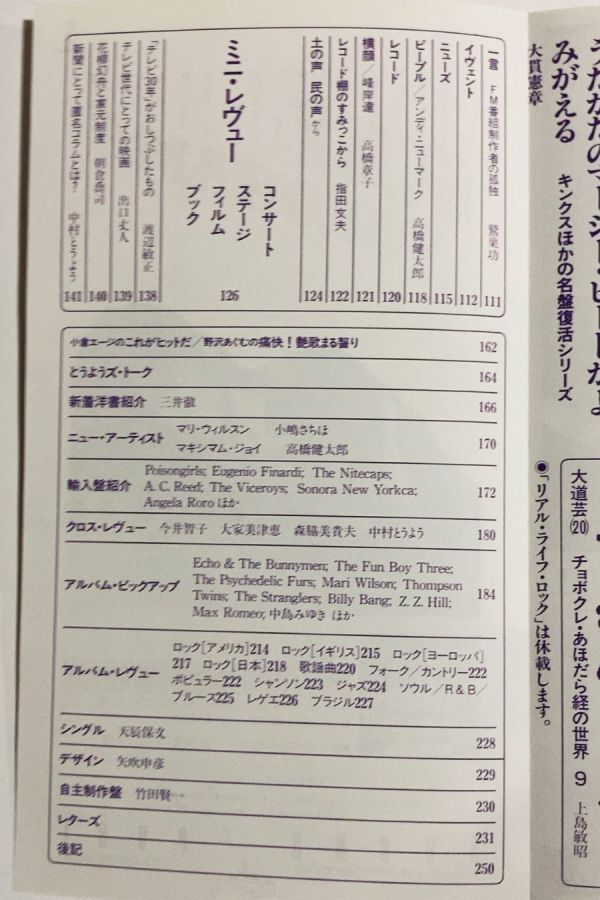 大貫憲章
みがえる キンクスほかの名盤復活シリーズ
●「リアル・ライフ・ロック」は休載します。
大道芸(20) チョボクレ・あほだら経の世界 9 上島敏昭
一言 FM番組制作者の孤独 鷲巣功 111
イヴェント 112
ニューズ 115
ピープル/アンディ・ニューマーク 高橋健太郎 118
レコード 120
横顔/峰岸達 高橋章子 121
レコード棚のすみっこから 指田文夫 122
土の声 民の声から 124
ミニ・レヴュー コンサート ステージ フィルム ブック 126
「テレビ30年」がおしつぶしたもの 渡辺敏正 138
テレビ世代にとっての映画 出口丈人 139
花柳幻舟と家元制度 朝倉喬司 140
新聞にとって匿名コラムとは? 中村とうよう 141
小倉エージのこれがヒットだ/野沢あぐむの痛快!艶歌まる齧り 162
とうようズ・トーク 164
新着洋書紹介 三井徹 166
ニュー・アーティスト マリ・ウィルスン 小嶋さちほ
マキシマム・ジョイ 高橋健太郎 170
輸入盤紹介 Poisongirls; Eugenio Finardi; The Nitecaps;
A. C. Reed; The Viceroys; Sonora New Yorkca;
Angela Roro ほか 172
クロス・レヴュー 今井智子 大家美津恵 森脇美貴夫 中村とうよう 180
アルバム・ピックアップ Echo & The Bunnymen; The Fun Boy Three;
The Psychedelic Furs; Mari Wilson; Thompson
Twins; The Stranglers; Billy Bang; Z. Z. Hill;
Max Romeo; 中島みゆき ほか 184
アルバム・レヴュー ロック[アメリカ]214 ロック[イギリス]215 ロック[ヨーロッパ]
217 ロック[日本]218 歌謡曲220 フォーク/カントリー222
ポピュラー222 シャンソン223 ジャズ224 ソウル/R&B/
ブルース225 レゲエ226 ブラジル227
シングル 天辰保文 228
デザイン 矢吹申彦 229
自主制作盤 竹田賢一 230
レターズ 231
後記 250